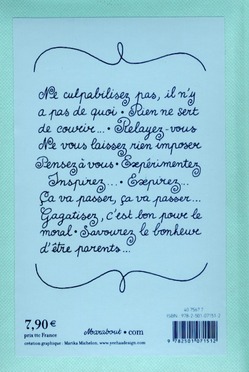 Ne culpabilisez pas, il n'y
a pas de quoi • Rien ne sert
de courir... • Relayez-vous
Ne vous laissez rien imposer
Pensez à vous • Expérimentez
Inspirez... • Expirez...
Ça va passer, ça va passer...
Gagatisez, c'est bon pour le
moral • Savourez le bonheur
d'être parents...
7,90 €
prix ttc France
Marabout • com
création graphique : Marika Michelon, www.yeeliaadesign.com
9 782501 071512